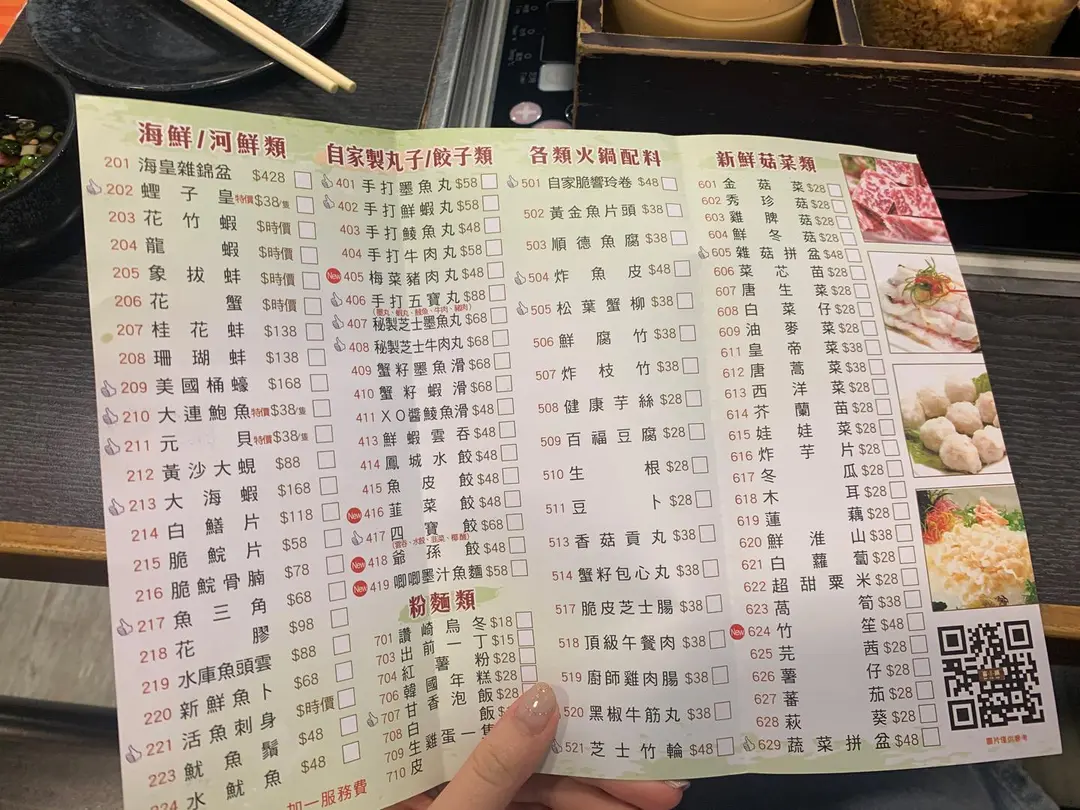 海鮮/河鮮類
201 海皇雜錦盆 $428
202 蟶子皇 特價$38/隻
203 花竹蝦 $時價
204 龍蝦 $時價
205 象拔蚌 $時價
206 花蟹 $時價
207 桂花蚌 $138
208 珊瑚蚌 $138
209 美國桶蠔 $168
210 大連鮑魚 特價$38/隻
211 元貝 特價$38/隻
212 黃沙大蜆 $88
213 大海蝦 $168
214 白鱔片 $118
215 脆鯇片 $58
216 脆鯇骨腩 $78
217 魚三角 $68
218 花膠 $98
219 水庫魚頭雲 $88
220 新鮮魚卜 $68
221 活魚刺身 $時價
223 魷魚鬚 $48
224 水魷魚 $48
加一服務費
自家製丸子/餃子類
401 手打墨魚丸 $58
402 手打鮮蝦丸 $58
403 手打鯪魚丸 $48
404 手打牛肉丸 $58
New 405 梅菜豬肉丸 $48
406 手打五寶丸 $88
(墨丸、蝦丸、鯪魚、牛肉、豬肉)
407 秘製芝士墨魚丸 $68
408 秘製芝士牛肉丸 $68
409 蟹籽墨魚滑 $68
410 蟹籽蝦滑 $68
411 XO醬鯪魚滑 $48
413 鮮蝦雲吞 $48
414 鳳城水餃 $48
415 魚皮餃 $48
New 416 韮菜餃 $48
417 四寶餃 $68
New 418 爺孫餃 $48
New 419 唧唧墨汁魚麵 $58
粉麵類
701 讚崎烏冬 $18
703 出前一丁 $15
704 紅薯粉 $28
706 韓國年糕 $28
707 甘香泡飯 $28
708 白飯
709 生雞蛋一隻
710 皮
各類火鍋配料
501 自家脆響玲卷 $48
502 黃金魚片頭 $38
503 順德魚腐 $38
504 炸魚皮 $48
505 松葉蟹柳 $38
506 鮮腐竹 $38
507 炸枝竹 $38
508 健康芋絲 $28
509 百福豆腐 $28
510 生根 $28
511 豆卜 $28
513 香菇貢丸 $38
514 蟹籽包心丸 $38
517 脆皮芝士腸 $38
518 頂級午餐肉 $38
519 廚師雞肉腸 $38
520 黑椒牛筋丸 $38
521 芝士竹輪 $48
新鮮菇菜類
601 金菇菜 $28
602 秀珍菇 $28
603 雞脾菇 $28
604 鮮冬菇 $28
605 雜菇拼盆 $48
606 菜芯苗 $28
607 唐生菜 $28
608 白菜仔 $28
609 油麥菜 $28
611 皇帝菜 $38
612 唐蒿菜 $38
613 西洋菜 $28
614 芥蘭苗 $28
615 娃娃菜 $28
616 炸芋片 $28
617 冬瓜 $28
618 木耳 $28
619 蓮藕 $28
620 鮮淮山 $38
621 白蘿蔔 $28
622 超甜粟米 $28
623 萵筍 $38
New 624 竹笙 $48
625 芫茜 $28
626 薯仔 $28
627 蕃茄 $28
628 萩葵 $28
629 蔬菜拼盆 $48
圖片僅供參考